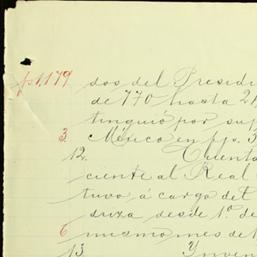 fs 1,179 dos del Presid
de 770 hasta 2
tinguió por su
3. México en fjs. 3
12. Cuenta
ciente al Real
tuvo á cargo del
suza desde 1º de
6 mismo mes de 1
13 Inven